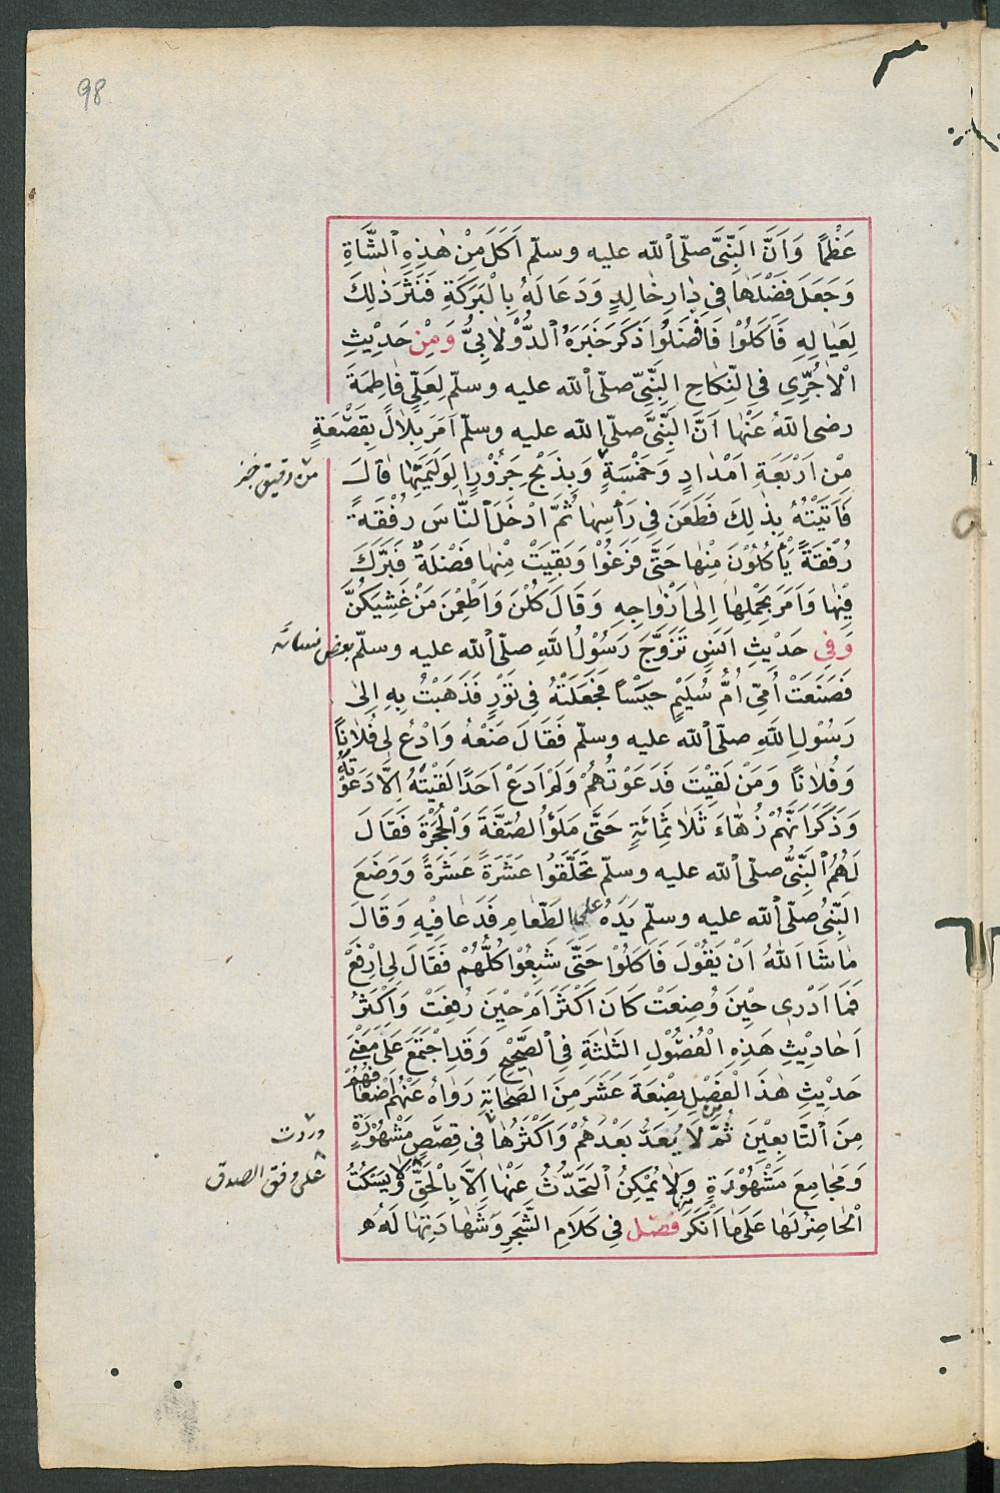 98
عَظْمًا وَاَنَّ النَّبِىَّ صلّى ٱللّه عليه وسلّم اَكَلَ مِنْ هٰذِهِ الشَّاةِ
وَجَعَلَ فَضْلَهَا فِى دَارِ خَالِدٍ وَدَعَا لَهُ بِالْبَرَكَةِ فَنَثَرَ ذٰلِكَ
لِعِيَالِهِ فَاَكَلُوْا فَاَفْضَلُوا ذَكَرَ خَبَرَهُ الدُّوْلَابِىُّ وَمِنْ حَدِيْثِ
الْاٰجُرِّىِ فِى النِّكَاحِ النَّبِىِّ صلّى ٱللّه عليه وسلّم لِعَلِىٍّ فَاطِمَةَ
رضى اللّٰهُ عَنْهَا اَنَّ النَّبِىَّ صلّى ٱللّه عليه وسلّم اَمَرَ بِلَالً بِقَصْعَةٍ
مِنْ اَرْبَعَةِ اَمْدَادٍ وَخَمْسَةٍ وَبِذَبْحِ جَزُوْرٍ لِوَلِيْمَتِهَا قَالَ
من دقيق خبز
فَاَتَيْتُهُ بِذٰلِكَ فَطَعَنَ فِى رَأْسِهَا ثُمَّ ادْخَلَ ٱلنَّاسَ رُفْقَةً
رُفْقَةً يَأْكُلُوْنَ مِنْهَا حَتَّى فَرَغُوْا وَبَقِيَتْ مِنْهَا فَضْلَةٌ فَبَرَّكَ
فِيْهَا وَاَمَرَ بِحَمْلِهَا اِلٰى اَزْوَاجِهِ وَقَالَ كُلْنَ وَاَطْعِمْنَ مَنْ غَشِيَكُنَّ
وَفِى حَدِيْثِ اَنَسٍ تَزَوَّجَ رَسُوْلُ اللّٰهِ صلّى ٱللّه عليه وسلّم بعض نسائه
فَصَنَعَتْ اُمِّى اُمُّ سُلَيْمٍ حَيْسًا فَجَعَلَتْهُ فِى تَوْرٍ فَذَهَبْتُ بِهِ اِلٰى
رَسُوْلِ اللّٰهِ صلّى ٱللّه عليه وسلّم فَقَالَ ضَعْهُ وَادْعُ لِى فُلَانًا
وَفُلَانًا وَمَنْ لَقِيْتَ فَدَعَوْتُهُمْ وَلَمْ اَدَعْ اَحَدًا لَقِيْتُهُ اِلَّا دَعَوْتُهُ
وَذَكَرَ اَنَّهُمْ زُهَاءَ ثَلَاثِمِائَةٍ حَتَّى مَلَؤُا الصُّفَّةَ وَالْحُجْرَةَ فَقَالَ
لَهُمُ النَّبِىُّ صلّى ٱللّه عليه وسلّم تَحَلَّقُوا عَشَرَةً عَشَرَةً وَوَضَعَ
النَّبِىُ صلّى ٱللّه عليه وسلّم يَدَهُ على الطَّعَامِ فَدَعَا فِيْهِ وَقَالَ
مَا شَا اَللّٰهُ اَنْ يَقُوْلَ فَاَكَلُوْا حَتَّى شَبِعُوْا كُلُّهُمْ فَقَالَ لِى ارْفَعْ
فَمَا اَدْرِى حِيْنَ وُضِعَتْ كَانَ اَكْثَرَ اَمْ حِيْنَ رُفِعَتْ وَاَكْثَرُ
اَحَادِيْثِ هَذِهِ الْفُصُوْلِ الثَّلٰثَةِ فِى ٱلصَّحِيْحِ وَقَدِ اجْتَمَعَ عَلَى مَعْنَى
حَدِيْثِ هٰذَ الْفَصْلِ بِضْعَةَ عَشَرَ مِنَ الصَّحَابَةِ رَوَاهُ عَنْهُمْ اَضْعَافُهُمْ
مِنَ ٱلتَّابِعِيْنَ ثُمَّ لَا يُعَدُّ بَعْدَهُمْ وَاَكْثَرُهَا فِى قِصَصٍ مَشْهُوْرَةٍ
وردت
وَمَجَامِعَ مَشْهُوْرَةٍ وَلَا يُمْكِنُ ٱلتَّحَدُّثُ عَنْهَا اِلَّا بِالْحَقِّ وَلَا يَسْكُتُ
على وفق الصدق
اْلحَاضِرُ لَهَا عَلَى مَا اَنْكَرَ فصْل فِى كَلَامِ الشَّجَرِ وَشَهَادَتِهَا لَهُ